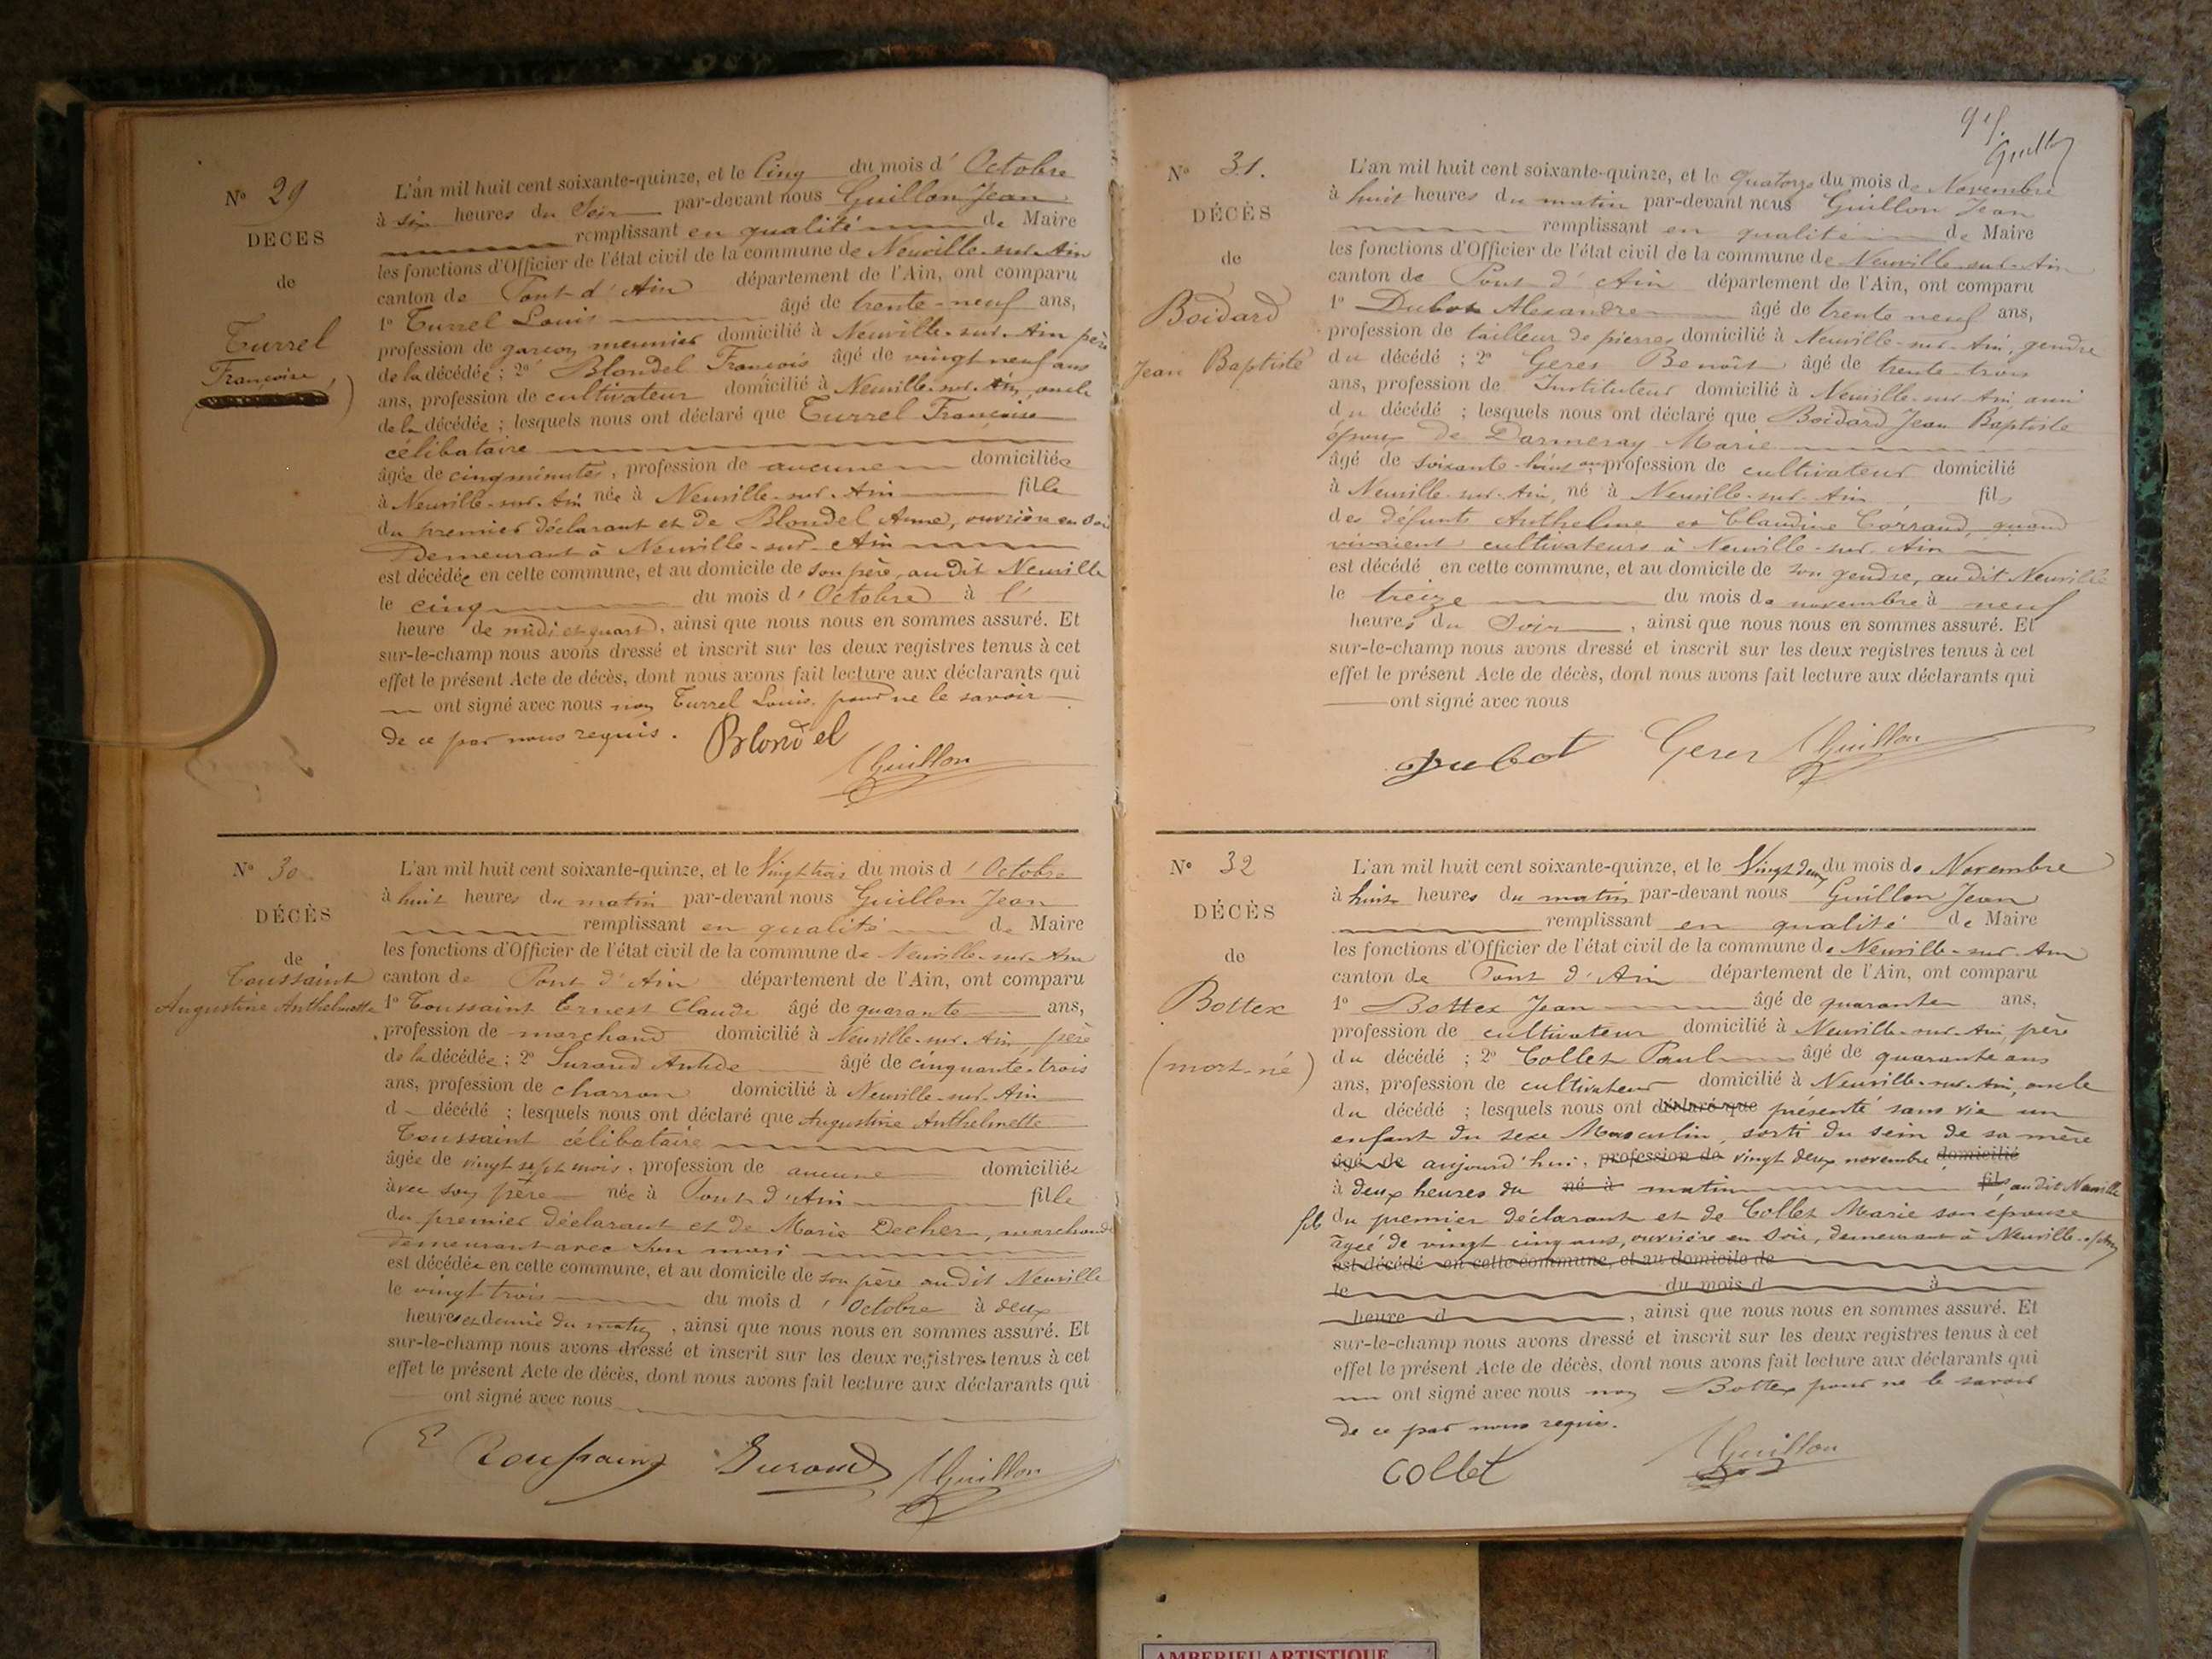 N° 29
DECES
de
Turrel
Françoise
L'an mil huit cent soixante-quinze, et le Cinq du mois d' Octobre
à six heures du Soir par-devant nous Guillon Jean
remplissant en qualité de Maire
les fonctions d'Officier de l'état civil de la commune de Neuville-sur-Ain
canton de Pont-d'Ain département de l'Ain, ont comparu
1° Turrel Louis âgé de trente-neuf ans,
profession de garçon meunier domicilié à Neuville-sur-Ain père
de la décédée ; 2° Blondel François âgé de vingt neuf ans
ans, profession de cultivateur domicilié à Neuville-sur-Ain, oncle
de la décédée ; lesquels nous ont déclaré que Turrel Françoise
célibataire
âgée de cinq minutes, profession de aucune domiciliée
à Neuville-sur-Ain née à Neuville-sur-Ain fille
du premier déclarant et de Blondel Anne, ouvrière en soie
demeurant à Neuville-sur-Ain
est décédée en cette commune, et au domicile de son père, audit Neuville
le cinq du mois d' Octobre à l'
heure de midi et quart, ainsi que nous nous en sommes assuré. Et
sur-le-champ nous avons dressé et inscrit sur les deux registres tenus à cet
effet le présent Acte de décès, dont nous avons fait lecture aux déclarants qui
ont signé avec nous non Turrel Louis, pour ne le savoir
de ce par nous requis.
Blondel
Guillon
N° 30
DÉCÈS
de
Toussaint
Augustine Anthelmette
L'an mil huit cent soixante-quinze, et le Vingt trois du mois d' Octobre
à huit heures du matin par-devant nous Guillon Jean
remplissant en qualité de Maire
les fonctions d'Officier de l'état civil de la commune de Neuville-sur-Ain
canton de Pont d'Ain département de l'Ain, ont comparu
1° Toussaint Ernest Claude âgé de quarante ans,
profession de marchand domicilié à Neuville-sur-Ain, père
de la décédée ; 2° Durand Antide âgé de cinquante-trois
ans, profession de charron domicilié à Neuville-sur-Ain
d décédé ; lesquels nous ont déclaré que Augustine Anthelmette
Toussaint célibataire
âgée de vingt sept mois, profession de aucune domiciliée
avec son père née à Pont d'Ain fille
du premier déclarant et de Marie Decher, marchande
demeurant avec son mari
est décédée en cette commune, et au domicile de son père audit Neuville
le vingt trois du mois d' Octobre à deux
heures et demie du matin, ainsi que nous nous en sommes assuré. Et
sur-le-champ nous avons dressé et inscrit sur les deux registres tenus à cet
effet le présent Acte de décès, dont nous avons fait lecture aux déclarants qui
ont signé avec nous
E Toussaint Durand Guillon
Guillon
N° 31.
DÉCÈS
de
Boidard
Jean Baptiste
L'an mil huit cent soixante-quinze, et le Quatorze du mois de Novembre
à huit heures du matin par-devant nous Guillon Jean
remplissant en qualité de Maire
les fonctions d'Officier de l'état civil de la commune de Neuville-sur-Ain
canton de Pont d'Ain département de l'Ain, ont comparu
1° Dubot Alexandre âgé de trente neuf ans,
profession de tailleur de pierres domicilié à Neuville-sur-Ain, gendre
du décédé ; 2° Geres Benoît âgé de trente-trois
ans, profession de Instituteur domicilié à Neuville-sur-Ain, ami
du décédé ; lesquels nous ont déclaré que Boidard Jean Baptiste
époux de Darmeray Marie
âgé de soixante-huit ans profession de cultivateur domicilié
à Neuville-sur-Ain, né à Neuville-sur-Ain fils
des défunts Anthelme et Claudine Corraud, quand
vivaient cultivateurs à Neuville-sur-Ain
est décédé en cette commune, et au domicile de son gendre, audit Neuville
le treize du mois de novembre à neuf
heures du Soir, ainsi que nous nous en sommes assuré. Et
sur-le-champ nous avons dressé et inscrit sur les deux registres tenus à cet
effet le présent Acte de décès, dont nous avons fait lecture aux déclarants qui
ont signé avec nous
Dubot Geres Guillon
N° 32
DÉCÈS
de
Bottex
(mort-né)
L'an mil huit cent soixante-quinze, et le Vingt deux du mois de Novembre
à huit heures du matin par-devant nous Guillon Jean
remplissant en qualité de Maire
les fonctions d'Officier de l'état civil de la commune de Neuville-sur-Ain
canton de Pont d'Ain département de l'Ain, ont comparu
1° Bottex Jean âgé de quarante ans,
profession de cultivateur domicilié à Neuville-sur-Ain, père
du décédé ; 2° Collet Paul âgé de quarante ans
ans, profession de cultivateur domicilié à Neuville-sur-Ain, oncle
du décédé ; lesquels nous ont déclaré que présenté sans vie un
enfant du sexe Masculin, sorti du sein de sa mère
âgé de aujourd'hui, profession de vingt deux novembre domicilié
à deux heures du né à matin fils, audit Neuville
fils du premier déclarant et de Collet Marie son épouse
âgée de vingt cinq ans, ouvrière en soie, demeurant à Neuville-s/Ain
est décédé en cette commune, et au domicile de
le du mois d à
heure d , ainsi que nous nous en sommes assuré. Et
sur-le-champ nous avons dressé et inscrit sur les deux registres tenus à cet
effet le présent Acte de décès, dont nous avons fait lecture aux déclarants qui
ont signé avec nous non Bottex pour ne le savoir
de ce par nous requis.
Collet Guillon
AMBERIEU ARTISTIQUE